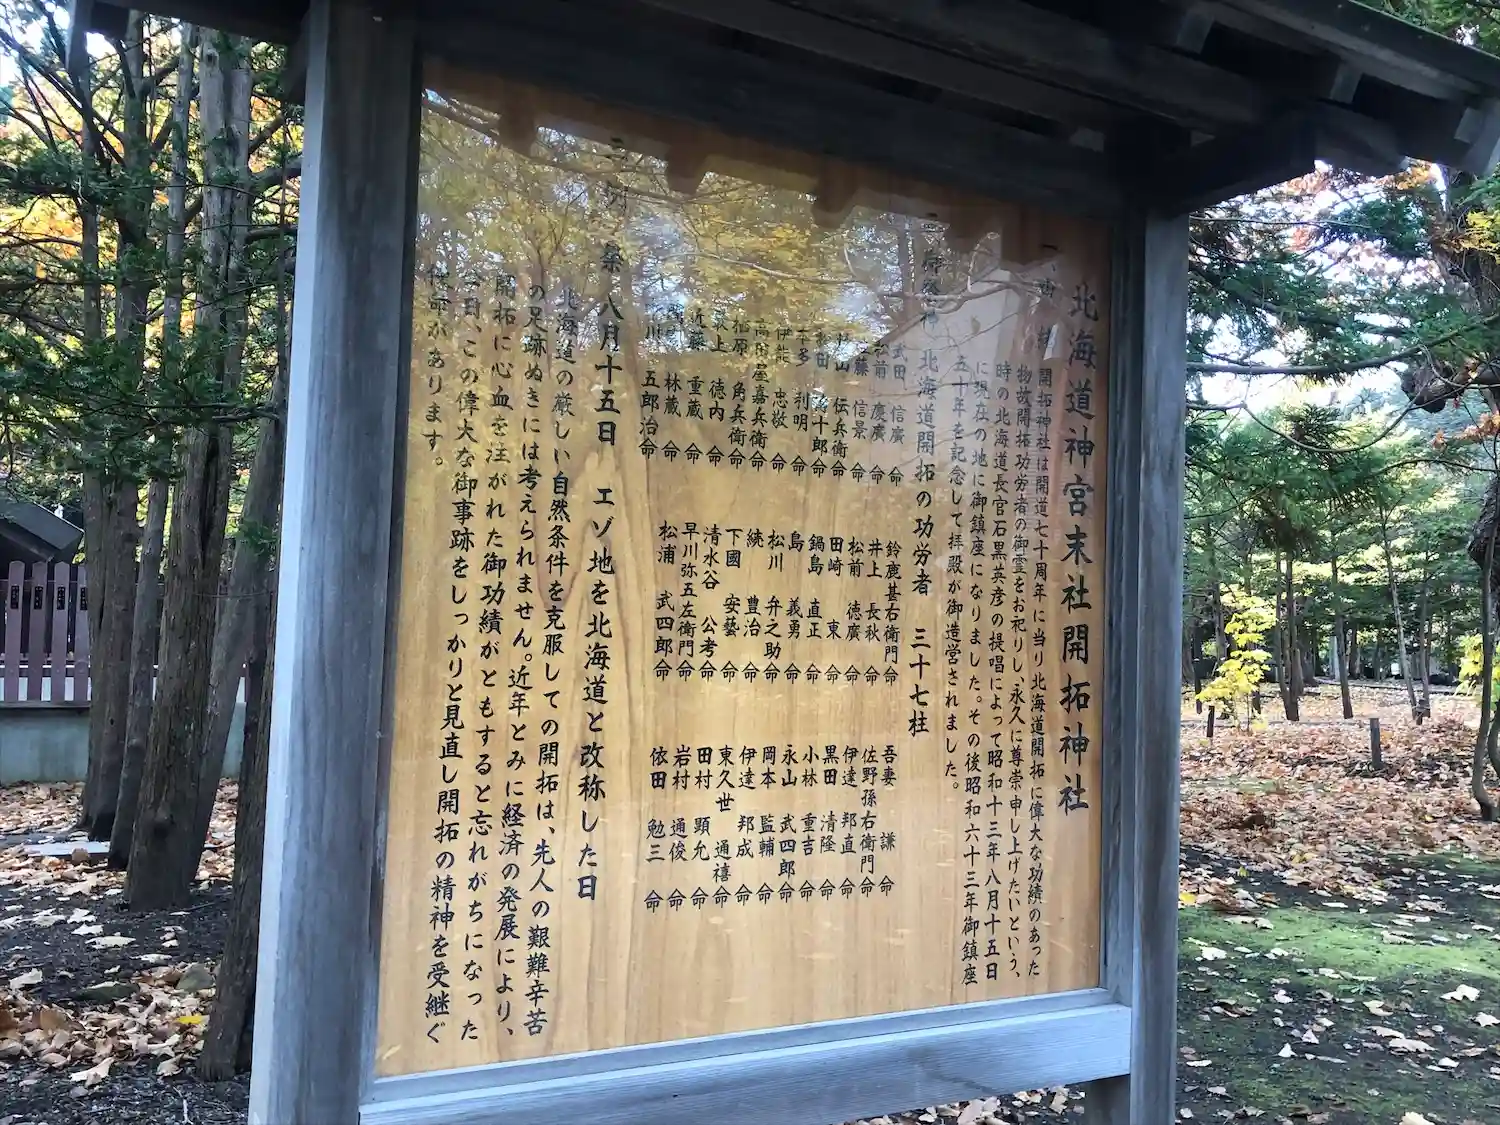 北海道神宮末社開拓神社
一、由緒
開拓神社は開道七十周年に当り北海道開拓に偉大な功績のあった
物故開拓功労者の御霊をお祀りし、永久に尊崇申し上げたいという、
時の北海道長官石黒英彦の提唱によって昭和十三年八月十五日
に現在の地に御鎮座になりました。その後昭和六十三年御鎮座
五十年を記念して拝殿が御造営されました。
御祭神 北海道開拓の功労者 三十七柱
武田 信廣 命
松前 慶廣 命
信景 命
村山 伝兵衛 命
十郎 命
本多 利明 命
伊能 忠敬 命
高田屋嘉兵衛 命
栖原 角兵衛 命
最上 徳内 命
近藤 重蔵 命
間宮 林蔵 命
中川 五郎治 命
鈴鹿甚右衛門 命
井上 長秋 命
松前 徳廣 命
田崎 東 命
鍋島 直正 命
島 義勇 命
松川 弁之助 命
続 豊治 命
下國 安藝 命
清水谷 公考 命
早川弥五左衛門 命
松浦 武四郎 命
吾妻 謙 命
佐野孫右衛門 命
伊達 邦直 命
黒田 清隆 命
小林 重吉 命
永山 武四郎 命
岡本 監輔 命
伊達 邦成 命
東久世 通禧 命
田村 顕允 命
岩村 通俊 命
依田 勉三 命
三、例祭 八月十五日 エゾ地を北海道と改称した日
北海道の厳しい自然条件を克服しての開拓は、先人の艱難辛苦
の足跡ぬきには考えられません。近年とみに経済の発展により、
開拓に心血を注がれた御功績がともすると忘れがちになった
今日、この偉大な御事跡をしっかりと見直し開拓の精神を受継ぐ
使命があります。